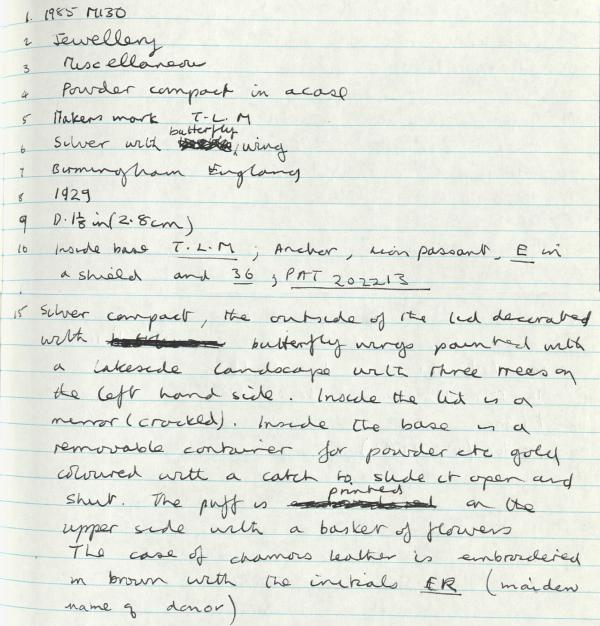 1. 1985 M130
2 Jewellery
3 Miscellaneous
4 Powder compact in a case
5 Makers mark T.L.M
butterfly
6 Silver with wing
7 Birmingham England
8 1929
9 D. 1⅛ in (2.8cm)
10 Inside base T.L.M ; Anchor, lion passant, E in
a shield and 36 ; PAT 202213
15 Silver compact, the outside of the lid decorated
with butterfly wings painted with
a lakeside landscape with three trees on
the left hand side. Inside the lid is a
mirror (cracked). Inside the base is a
removable container for powder etc gold
coloured with a catch to slide it open and
printed
shut. The puff is on the
upper side with a basket of flowers
The case of chamois leather is embroidered
in brown with the initials ER (maiden
name of donor)